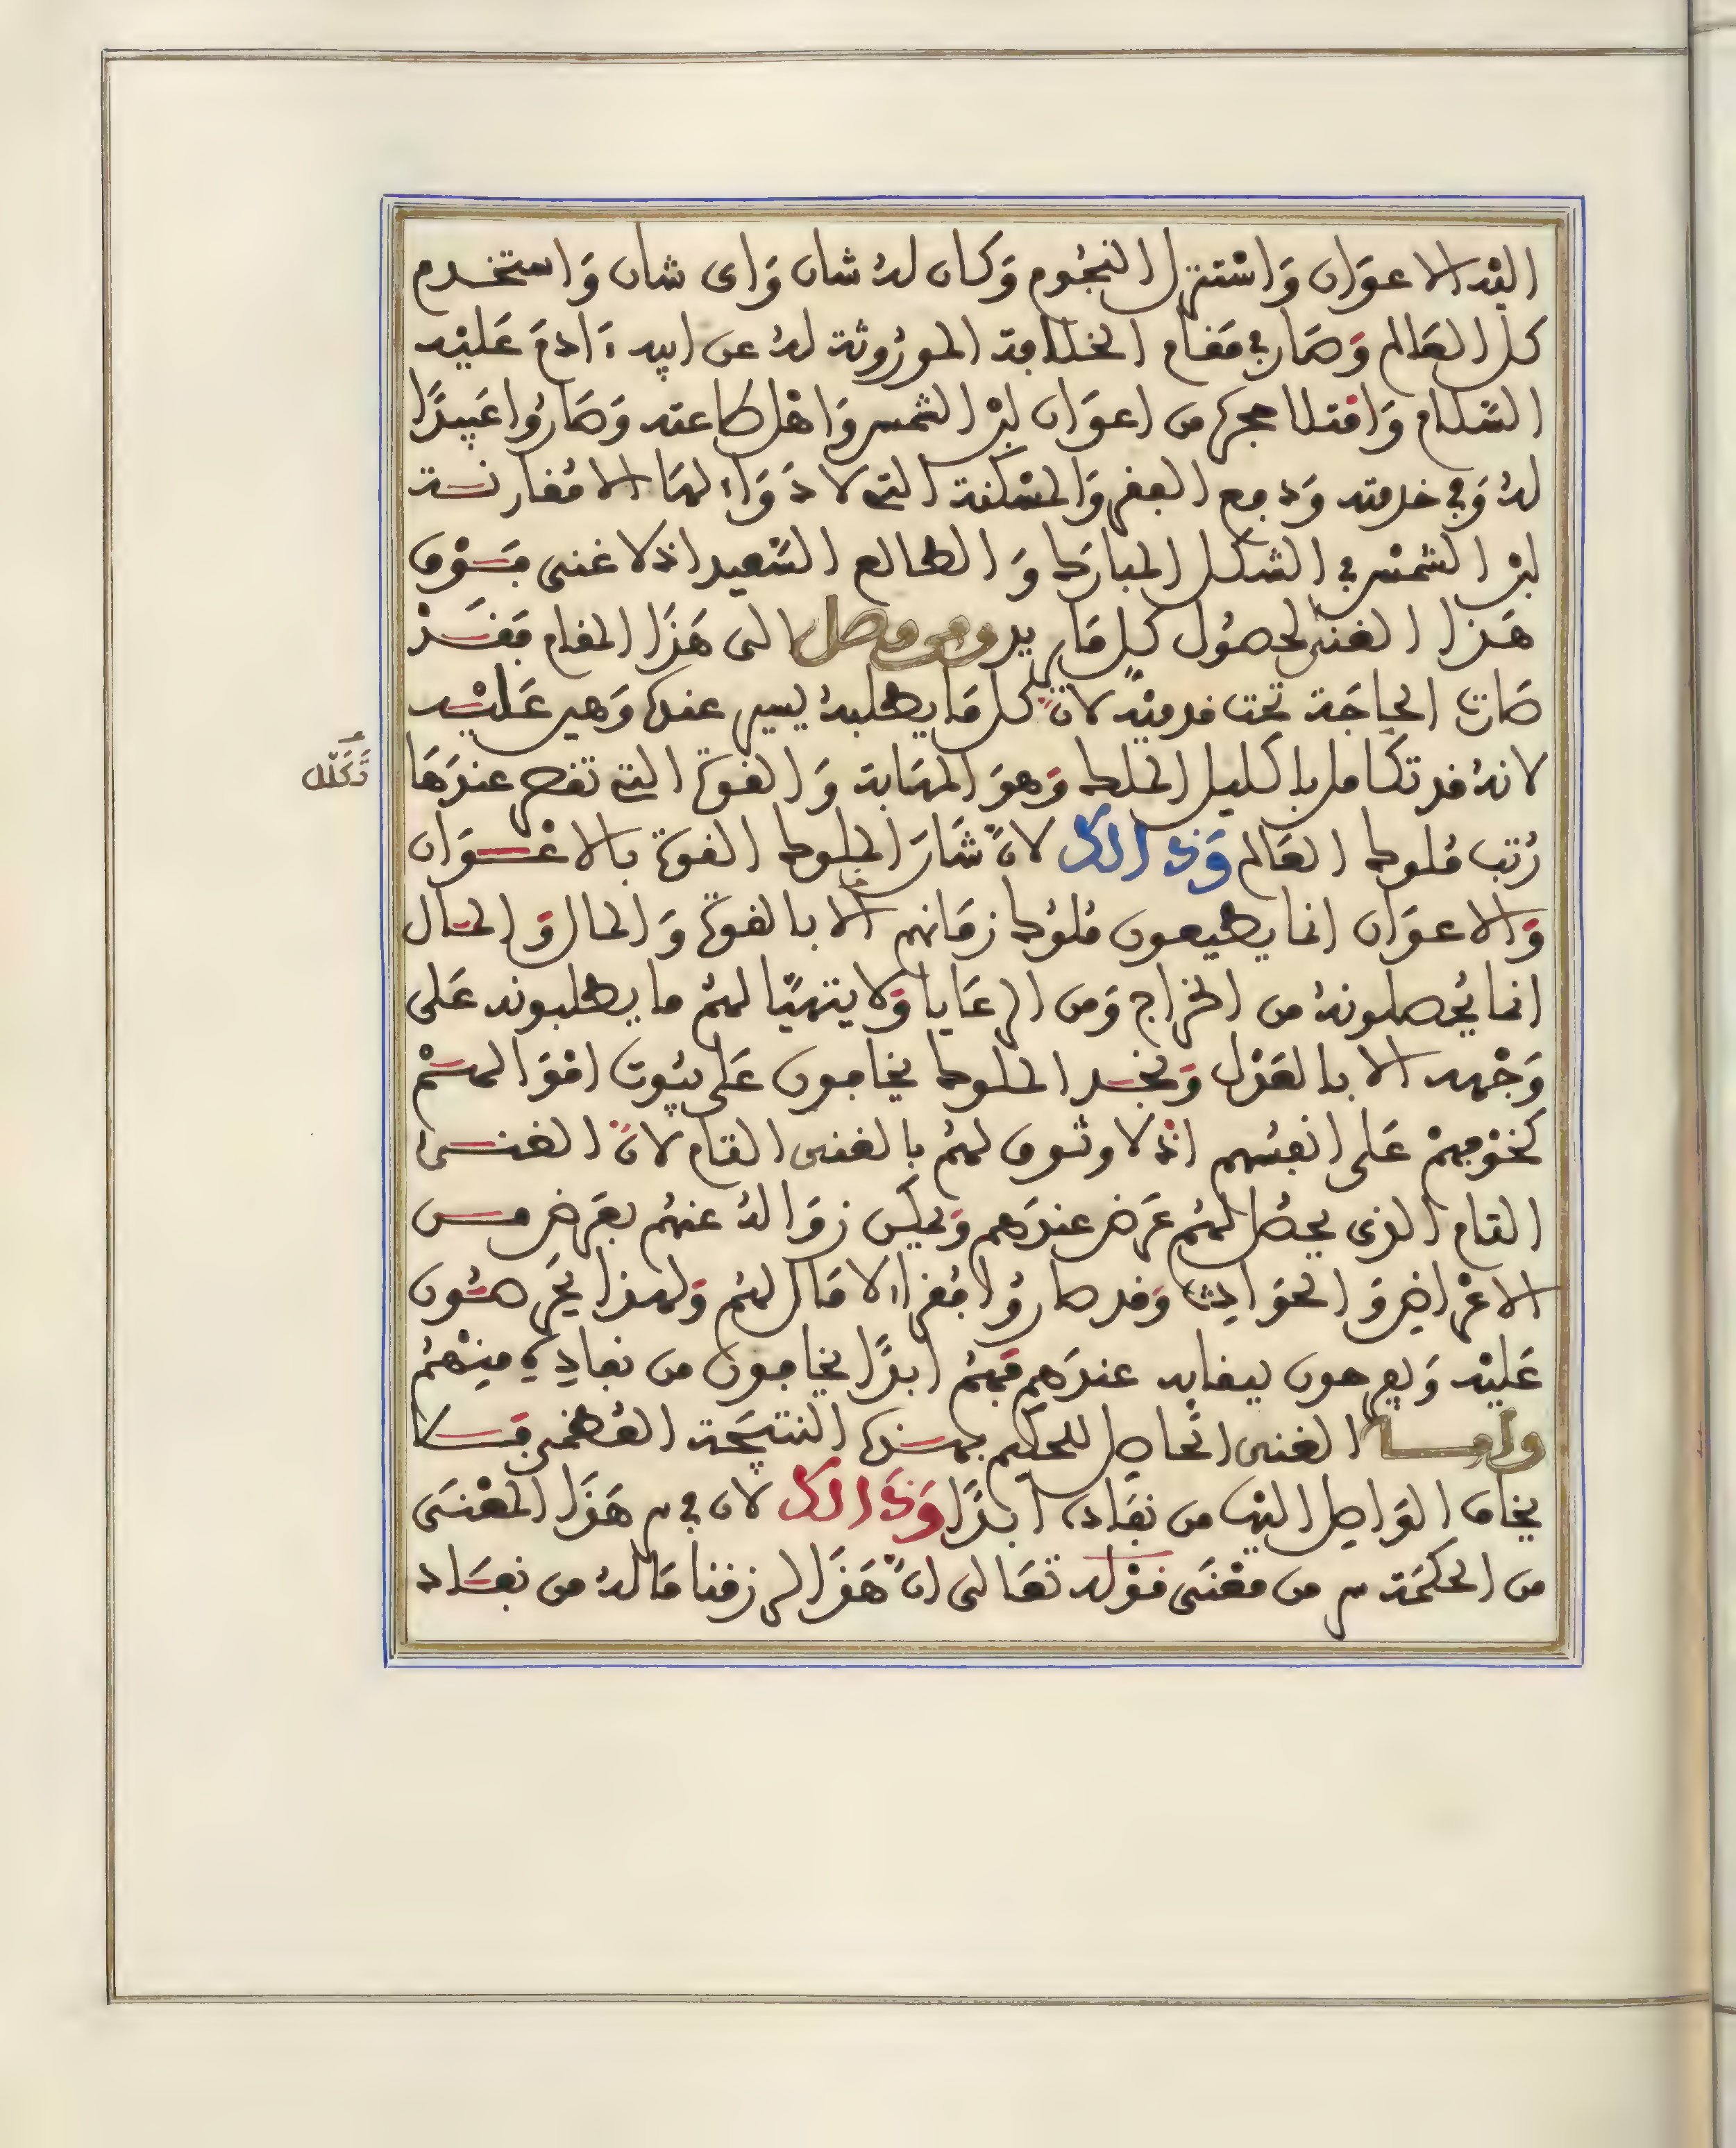 اليْه الاعوَان وَاسْتنزل النجُوم وَكان لهُ شان وَاى شان وَاستخدم
كل العَالم وَصَار في مَقام الخلافة الموْرُوثة لهُ عن ابيه ءَادمَ عَليْه
السَّلام وَامتلا حجره من اعوَان لبْز الشمس وَاهْل طاعته وَصَارُوا عَبيدًا
لهُ وَفي خدمته وَدفع الفقر وَالمسْكنة التى لا دَوَاء لهَا الا مُقارنة
لبْز الشمْس في الشكل المبارَك وَالطالع السَّعيد اذ لا غنى فَوْق
هَذا الغنى لحصُول كل مَا يريد ومن وصل الى هَذَا المقام فَقَدْ
صَارت الحاجَة تحت قدميْه لانّ كل مَا يطلبهُ يسير عنده وَهين عَليْه
لانهُ قد تكامل باكليل الملك وَهوَ المهَابة وَالقوة التى تقصر عندَهَا
تَكَلّل
رُتب مُلوك العَالم وَذالك لانّ شَان الملوك القوة بالاعْوَان
وَالاعوَان انما يطيعون مُلوُك زمَانهم الا بالقوة وَالمال وَالمال
انما يُحصلونهُ من الخراج وَمن الرعَايا وَلا يتهيّا لهمُ ما يطلبونه عَلى
وَجْهه الا بالعَدْل وَنجد الملوك يخافون عَلى بيُوت امْوَالهمْ
كخوْفهمْ عَلى انفسُهم اذ لا وثوق لهمُ بالغنى التام لانّ الغنى
التام الذى يحصُل لهمُ عَرَض عندَهم وَيمكن زوَالهُ عنهُم بعَرَض من
الاعْرَاض وَالحوَادث وَقد صارُوا فُقراء لا مَال لهُم وَلهذا يحَرصُون
عَليْه وَيفرحون ببقايه عندَهم فهمُ ابدًا يخافون من نفاده منْهُمْ
وامـا الغنى الحاصل للحكيم بهذه النتيجَة العُظمى فَلا
يخاف الوَاصل اليها من نفَاده ابَدًا وَذَالك لان فى سر هَذَا المعْنَى
من الحكمَة سر من معْنَى قوْله تعَالى انّ هَذَا لرزقنا مَا لهُ من نفَاد